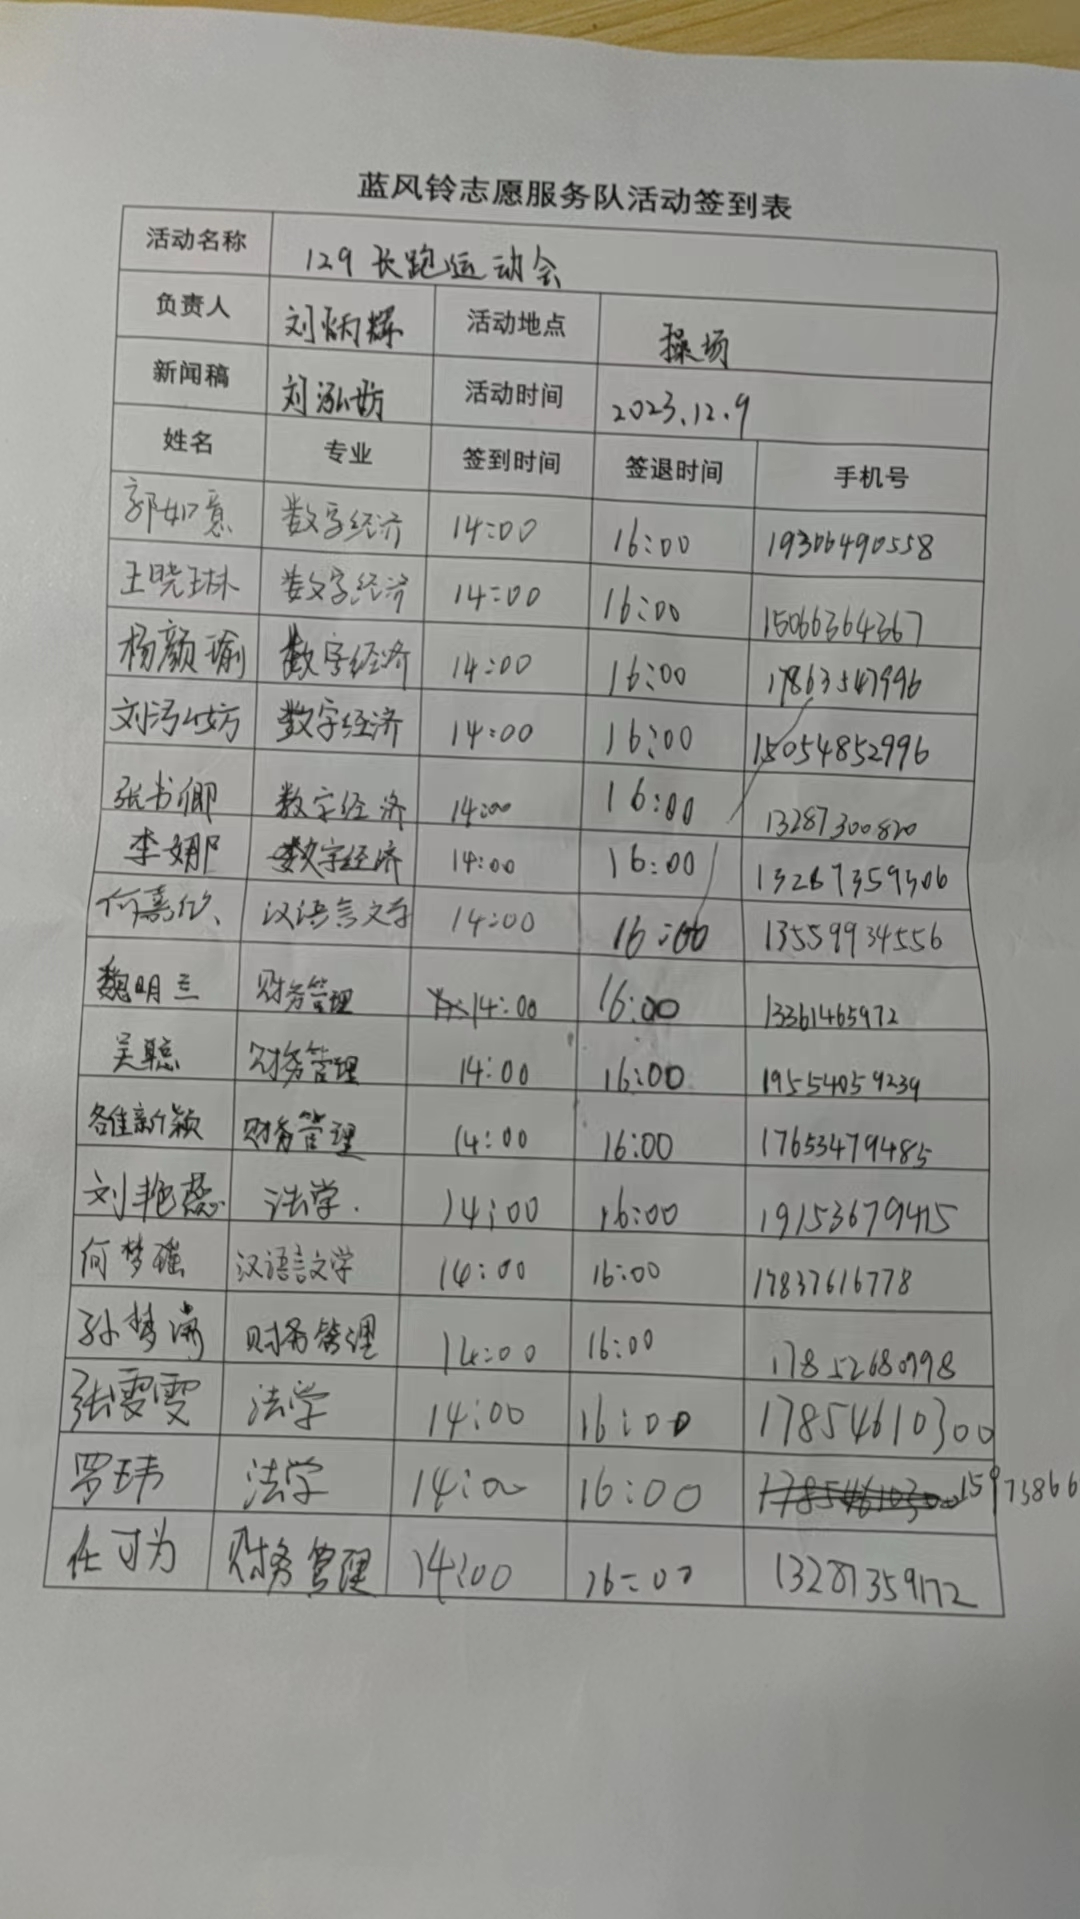 蓝风铃志愿服务队活动签到表
活动名称 129长跑运动会
负责人 刘炳辉 活动地点 操场
新闻稿 刘泓妨 活动时间 2023.12.9
姓名 专业 签到时间 签退时间 手机号
郭如意 数字经济 14:00 16:00 19306490558
王晓琳 数字经济 14:00 16:00 15066364367
杨颜瑜 数字经济 14:00 16:00 17863547996
刘泓妨 数字经济 14:00 16:00 15054852996
张书卿 数字经济 14:00 16:00 13287300820
李娜 数字经济 14:00 16:00 13287359306
何嘉欣 汉语言文学 14:00 16:00 13559934556
魏明兰 财务管理 14:00 16:00 13361465972
吴聪 财务管理 14:00 16:00 19554059239
昝新颖 财务管理 14:00 16:00 17653479485
刘艳蕊 法学 14:00 16:00 19153679415
何梦瑶 汉语言文学 14:00 16:00 17837616778
孙梦 财务管理 14:00 16:00 17852680998
张雯雯 法学 14:00 16:00 17854610300
罗玮 法学 14:00 16:00 15973866
任可为 财务管理 14:00 16:00 13287359172